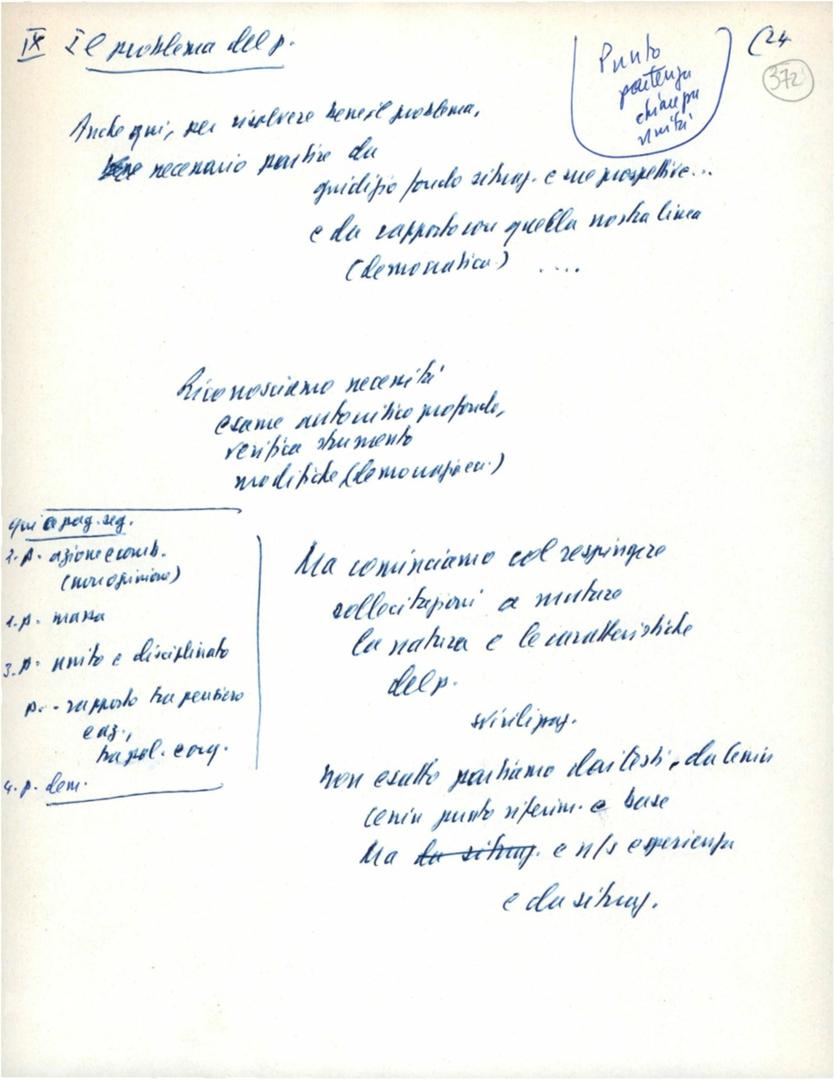 IX Il problema del p.
(24
372
Punto
partenza
chiave per
unità
Anche qui, per risolvere bene il problema,
necessario partire da
giudizio fondo situaz. e sue prospettive...
e da rapporto con quella nostra linea
(democratica) ....
Riconosciamo necessità
esame autocritico profondo,
verifica strumento
modifiche (democrazia ecc.)
qui o pag. seg.
2. p. azione e comb.
(non opinione)
1. p. massa
3. p. unito e disciplinato
p. - rapporto tra pensiero
e az.,
tra pol. e org.
4. p. dem.
Ma cominciamo col respingere
sollecitazioni a mutare
la natura e le caratteristiche
del p.
svirilizzaz.
Non esatto partiamo dai testi, da Lenin
Lenin punto riferim. e base
Ma la situaz. e n/s esperienza
e da situaz.